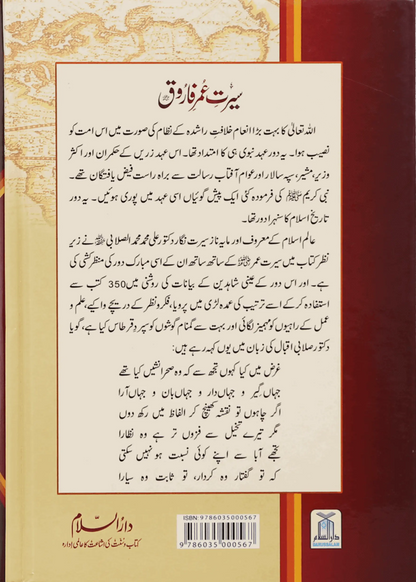 سیرتِ عُمر فاروق رضی اللہ عنہ
اللہ تعالیٰ کا بہت بڑا انعام خلافتِ راشدہ کے نظام کی صورت میں اس امت کو
نصیب ہوا۔ یہ دور عہدِ نبوی ہی کا امتداد تھا۔ اس عہدِ زریں کے حکمران اور اکثر
وزیر، مشیر، سپہ سالار اور عوام آفتابِ رسالت سے براہِ راست فیض یافتگان تھے۔
نبی کریم ﷺ کی فرمودہ کئی ایک پیش گوئیاں اسی عہد میں پوری ہوئیں۔ یہ دور
تاریخِ اسلام کا سنہرا دور تھا۔
عالمِ اسلام کے معروف اور مایہ ناز سیرت نگار دکتور علی محمد محمد الصلابی ﷾ نے زیرِ
نظر کتاب میں سیرتِ عمر ؓ کے ساتھ ساتھ ان کے اسی مبارک دور کی منظر کشی کی
ہے۔ اور اس دور کے عینی شاہدین کے بیانات کی روشنی میں 350 کتب سے
استفادہ کر کے اسے ترتیب کی عمدہ لڑی میں پرویا، فکر و نظر کے دریچے وا کیے، علم و
عمل کے راہیوں کو مہمیز لگائی اور بہت سے گمنام گوشوں کو سپردِ قرطاس کیا ہے، گویا
دکتور صلابی اقبال کی زبان میں یوں کہہ رہے ہیں:
غرض میں کیا کہوں تجھ سے کہ وہ صحرا نشیں کیا تھے
جہاں گیر و جہاں دار و جہاں بان و جہاں آرا
اگر چاہوں تو نقشہ کھینچ کر الفاظ میں رکھ دوں
مگر تیرے تخیل سے فزوں تر ہے وہ نظارا
تجھے آبا سے اپنے کوئی نسبت ہو نہیں سکتی
کہ تو گفتار وہ کردار، تو ثابت وہ سیارا
دارُالسلام
کتاب و سُنّت کی اشاعت کا عالمی ادارہ
ISBN: 9786035000567
9 786035 000567
دارالسلام